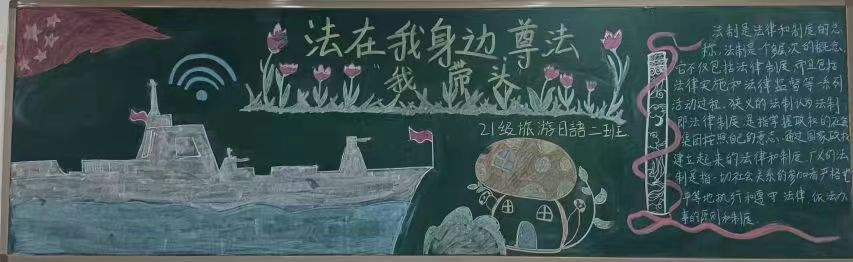 法在我身边尊法
"我带头"
21级旅游日語二班
法制是法律和制度的总
称,法制是一个多层次的概念,
它不仅包括法律制度,而且包括
法律实施和法律监督等一系列
活动过程。狭义的法制认为法制
即法律制度,是指掌握政权的社会
集团按照自己的意志、通过国家政权
建立起来的法律和制度,广义的法
制是指一切社会关系的参加者严格
平等地执行和遵守法律,依法办
事的原则和制度.